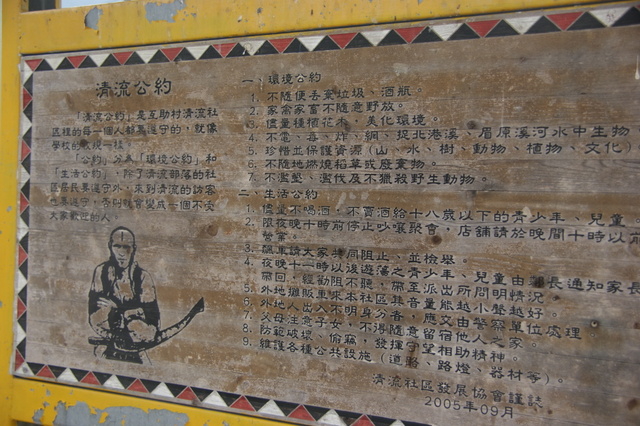 清流公約
「清流公約」是互助村清流社
區裡的每一個人都要遵守的，就像
學校的校規一樣。
「公約」分為「環境公約」和
「生活公約」，除了清流部落的社
區居民要遵守外，來到清流的訪客
也要遵守，否則就會變成一個不受
大家歡迎的人。
一、環境公約
1. 不隨便丟棄垃圾、酒瓶。
2. 家禽家畜不隨意野放。
3. 儘量種植花木，美化環境。
4. 不電、毒、炸、網、捉北港溪、眉原溪河水中生物
5. 珍惜並保護資源（山、水、樹、動物、植物、文化）
6. 不隨地燃燒稻草或廢棄物。
7. 不濫墾、濫伐及不獵殺野生動物。
二、生活公約
1. 儘量不喝酒，不賣酒給十八歲以下的青少年、兒童
2. 限夜晚十時前停止吵嚷聚會，店舖請於晚間十時以前
營業。
3. 飆車請大家共同阻止、並檢舉。
4. 夜晚十一時以後遊蕩之青少年、兒童由鄰長通知家長
帶回，經勸阻不聽，帶至派出所問明情況。
5. 外地攤販車來本社區播音量能越小聲越好。
6. 外地人出入不明身分者，應交由警察單位處理
7. 父母注意子女，不得隨意留宿他人之家。
8. 防範破壞、偷竊，發揮守望相助精神。
9. 維護各種公共設施（道路、路燈、器材等）。
清流社區發展協會謹誌
2005年09月